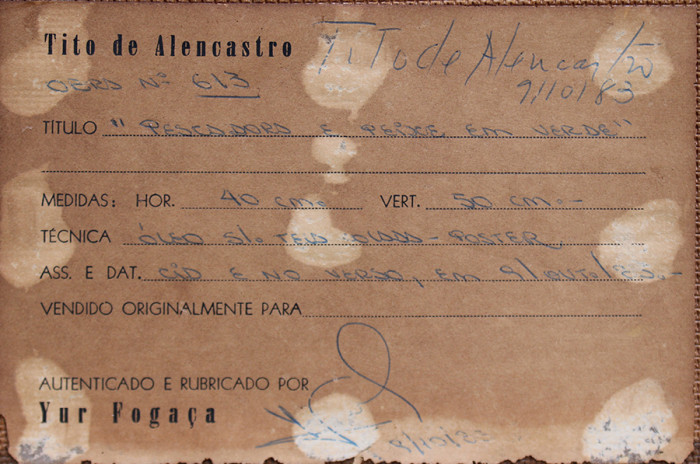 Tito de Alencastro Tito de Alencastro
OBRA Nº 613. 9/10/83
TÍTULO "PESCADORES E PEIXE EM VERDE"
MEDIDAS: HOR. 40 cm. VERT. 50 cm.-
TÉCNICA ÓLEO S/. TELA - POSTER
ASS. E DAT. CID E NO VERSO, EM 9/OUT./83.-
VENDIDO ORIGINALMENTE PARA
AUTENTICADO E RUBRICADO POR
Yur Fogaça
9/10/83